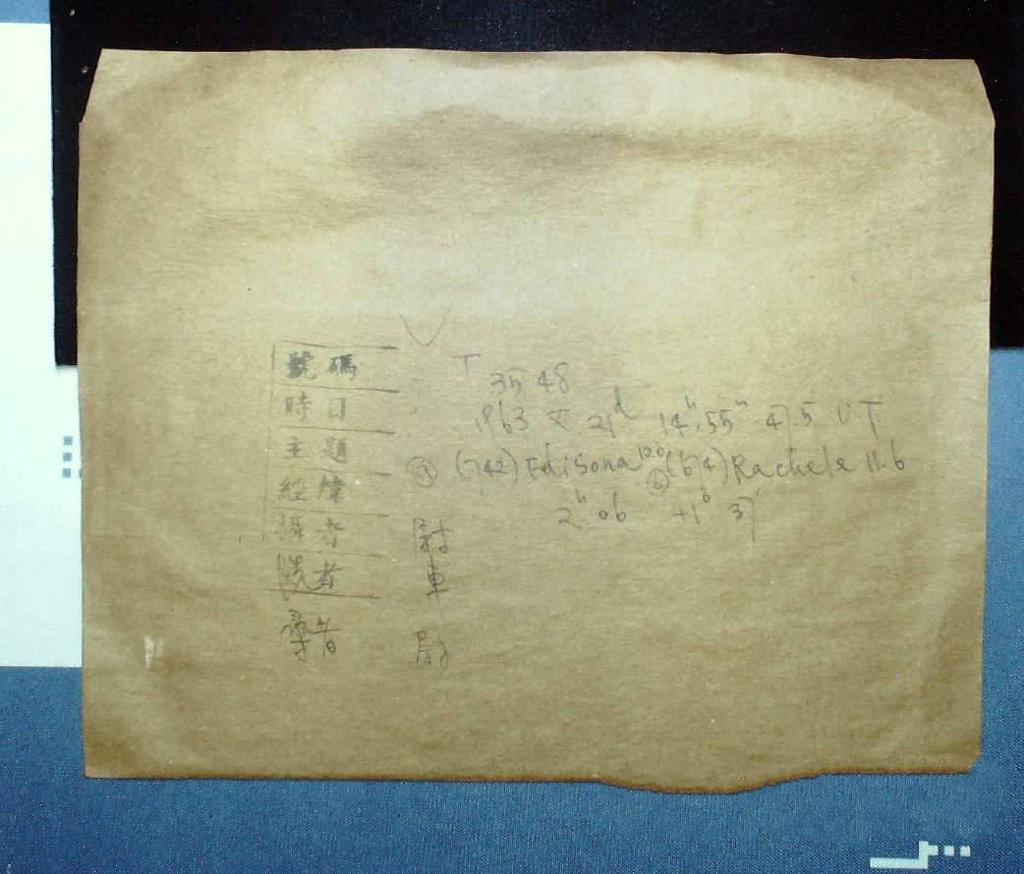 號碼 T 3548
時日 1963 X 21ᵈ 14ʰ 55ᵐ 47.5 U.T.
主題 ⓐ (742) Edisona 12.0 ⓑ (674) Rachele 11.6
經緯 2ʰ 06 +1° 37'
攝者 尉
洗者 車
尋者 尉